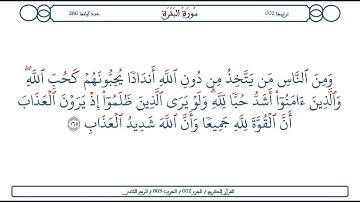 ترتيبها 002
سُورَةُ البَقَرَةِ
عدد آياتها 286
وَمِنَ ٱلنَّاسِ مَن يَتَّخِذُ مِن دُونِ ٱللَّهِ أَندَادًا يُحِبُّونَهُمْ كَحُبِّ ٱللَّهِ ۖ
وَٱلَّذِينَ ءَامَنُوٓا۟ أَشَدُّ حُبًّا لِّلَّهِ ۗ وَلَوْ يَرَى ٱلَّذِينَ ظَلَمُوٓا۟ إِذْ يَرَوْنَ ٱلْعَذَابَ
أَنَّ ٱلْقُوَّةَ لِلَّهِ جَمِيعًا وَأَنَّ ٱللَّهَ شَدِيدُ ٱلْعَذَابِ ١٦٥
القرآن الكريم / الجزء 002 / الحزب 003 / الربع